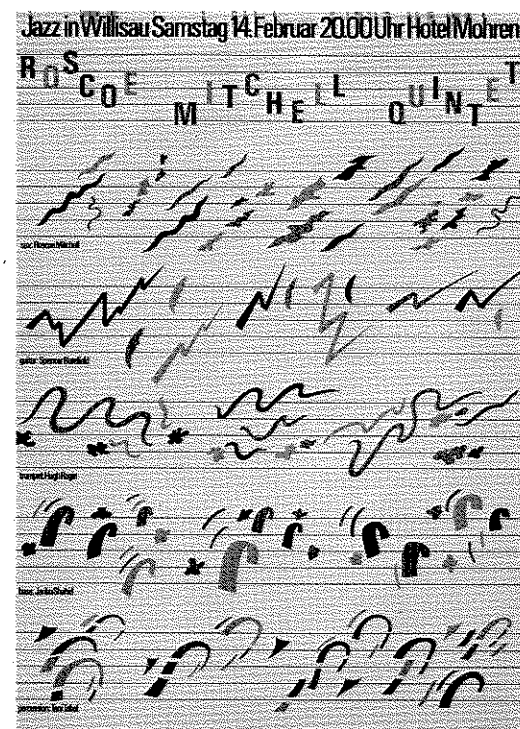 Jazz in Willisau Samstag 14. Februar 20.00 Uhr Hotel Mohren
ROSCOE MITCHELL QUINTET
sax: Roscoe Mitchell
guitar: Spencer
trumpet: Hugh Ragin
bass:
percussion: